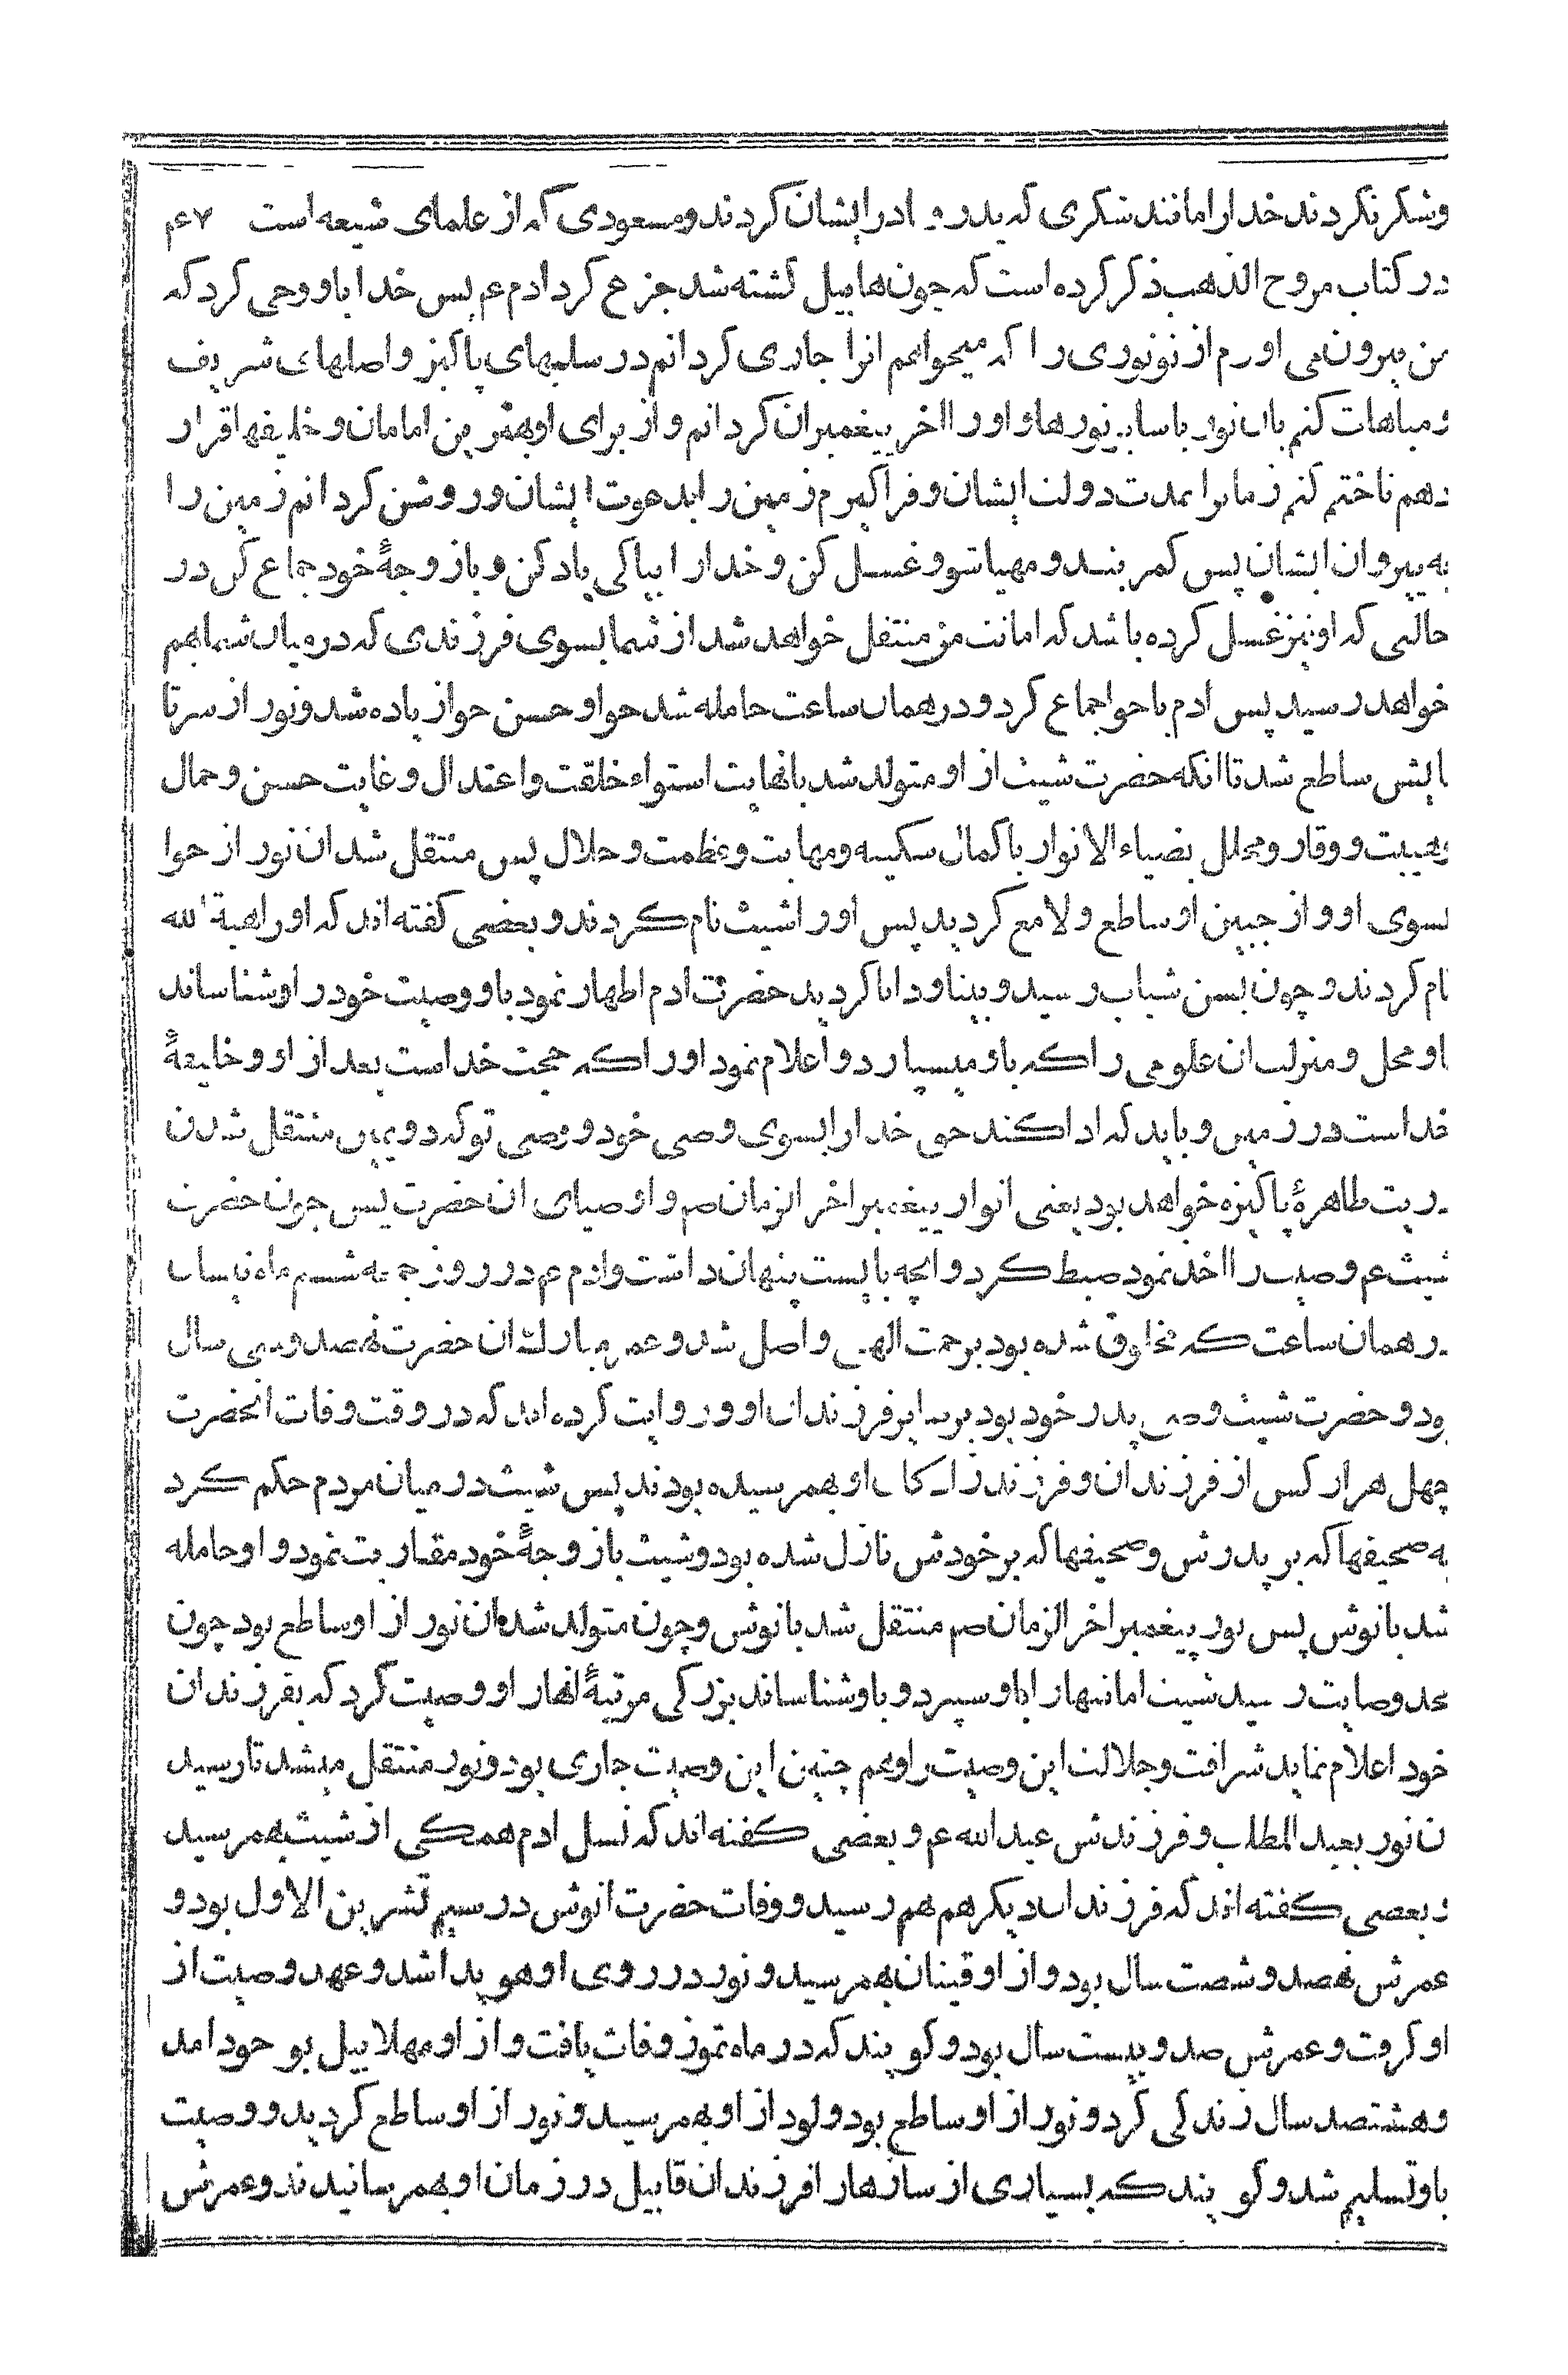 وشکر نکردند خدا را مانند شکری که پدر و مادر ایشان کردند و مسعودی که از علمای شیعه است ۴۶۷
در کتاب مروج الذهب ذکر کرده است که چون هابیل کشته شد جزع کرد ادم عم پس خدا باو وحی کرد که
من بیرون می اورم از تو نوری را که میخواهم انرا جاری کردانم در سلبهای پاکیز و اصلهای شریف
و مباهات کنم بان نور با سایر نورها و او را اخر پیغمبران کردانم و از برای او بهترین امامان و خلیفها قرار
دهم تا ختم کنم زمانرا بمدت دولت ایشان و فرا کیرم زمین را بدعوت ایشان و روشن کردانم زمین را
به پیروان ایشان پس کمر بند و مهیا شو و غسل کن و خدا را بپاکی یاد کن و با زوجهٔ خود جماع کن در
حالتی که او نیز غسل کرده باشد که امانت من منتقل خواهد شد از شما بسوی فرزندی که در میان شما بهم
خواهد رسید پس ادم با حوا جماع کرد و در همان ساعت حامله شد حوا و حسن حوا زیاده شد و نور از سر تا
پایش ساطع شد تا انکه حضرت شیث از او متولد شد با نهایت استواء خلقت و اعتدال و غایت حسن و جمال
و هیبت و وقار و مجلل بضیاء الانوار با کمال سکینه و مهابت و عظمت و جلال پس منتقل شد ان نور از حوا
بسوی او و از جبین او ساطع و لامع کردید پس او را شیث نام کردند و بعضی کفته اند که او را هبة الله
نام کردند و چون بسن شباب رسید و بینا و دانا کردید حضرت ادم اظهار نمود باو وصیت خود را و شناساند
باو محل و منزلت ان علومی را که باو میسپارد و اعلام نمود او را که حجت خداست بعد از او و خلیفهٔ
خداست در زمین و باید که ادا کند حق خدا را بسوی وصی خود و وصی تو که دویمین منتقل شدن
ذریت طاهرهٔ پاکیزه خواهد بود یعنی انوار پیغمبر اخر الزمان صم و اوصیای ان حضرت پس چون حضرت
شیث عم وصیت را اخذ نمود ضبط کرد و انچه بایست پنهان داشت و ادم عم در روز جمعه ششم ماه نیسان
در همان ساعت که مخلوق شده بود برحمت الهی واصل شد و عمر مبارک ان حضرت نهصد و سی سال
بود و حضرت شیث وصی پدر خود بود بر سایر فرزندان او و روایت کرده اند که در وقت وفات انحضرت
چهل هزار کس از فرزندان و فرزند زادگان او بهم رسیده بودند پس شیث در میان مردم حکم کرد
به صحیفها که بر پدرش و صحیفها که بر خودش نازل شده بود و شیث با زوجهٔ خود مقاربت نمود و او حامله
شد بانوش پس نور پیغمبر اخر الزمان صم منتقل شد بانوش و چون متولد شد ان نور از او ساطع بود چون
بحد وصایت رسید شیث امانتها را باو سپرد و باو شناساند بزرکی مرتبهٔ انها را و وصیت کرد که بفرزندان
خود اعلام نماید شرافت و جلالت این وصیت را و هم چنین این وصیت جاری بود و نور منتقل میشد تا رسید
ان نور بعبد المطلب و فرزندش عبد الله عم و بعضی کفته اند که نسل ادم همکی از شیث بهم رسید
و بعضی کفته اند که فرزندان دیکر هم بهم رسید و وفات حضرت انوش در سیم تشرین الاول بود و
عمرش نهصد و شصت سال بود و از او قینان بهم رسید و نور در روی او هویدا شد و عهد وصیت از
او کرفت و عمرش صد و بیست سال بود و کویند که در ماه تموز وفات یافت و از او مهلاییل بوجود امد
و هشتصد سال زندکی کرد و نور از او ساطع بود و لود از او بهم رسید و نور از او ساطع کردید و وصیت
باو تسلیم شد و کویند که بسیاری از سازها را فرزندان قابیل در زمان او بهم رسانیدند و عمرش